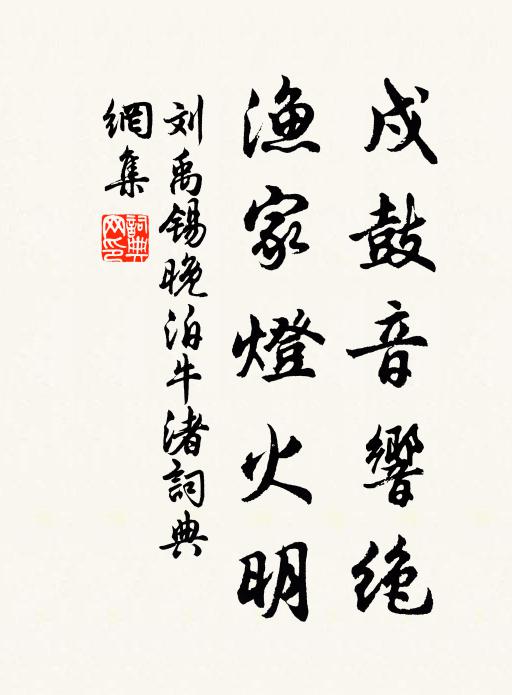 戍鼓音響绝
漁家燈火明
刘禹锡晚泊牛渚詞典
網集
詞典
网印